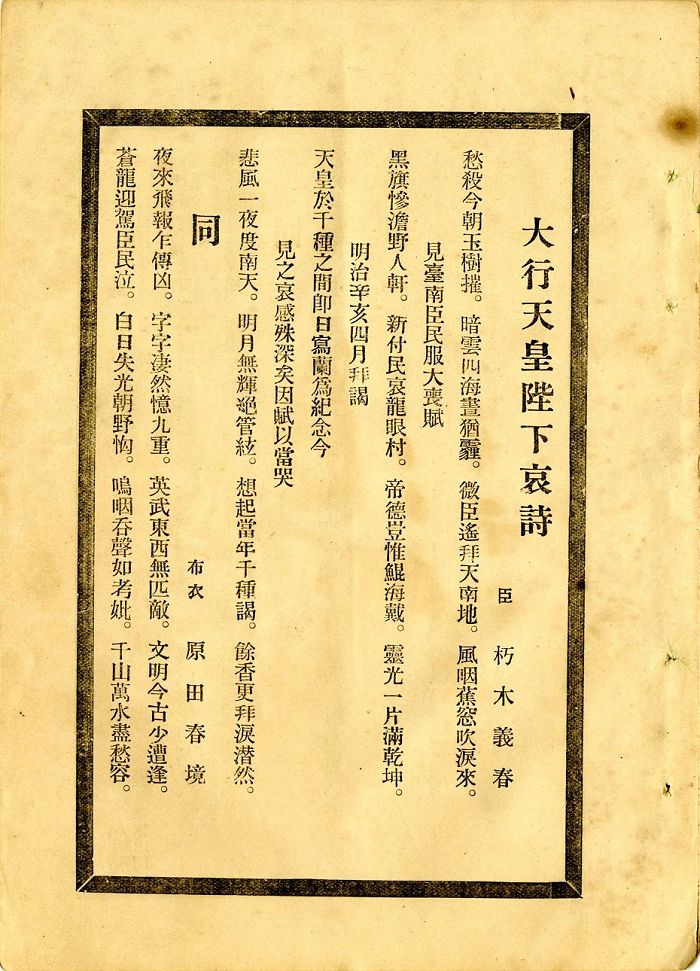 大行天皇陛下哀詩
臣 朽木義春
愁殺今朝玉樹摧。暗雲四海晝猶霾。微臣遙拜天南地。風咽蕉窓吹淚來。
見臺南臣民服大喪賦
黑旗慘澹野人軒。新付民哀龍眼村。帝德豈惟鯤海戴。靈光一片滿乾坤。
明治辛亥四月拜謁
天皇於千種之間卽日寫蘭爲紀念今
見之哀感殊深矣因賦以當哭
悲風一夜度南天。明月無輝絕管絃。想起當年千種謁。餘香更拜淚潸然。
同
布衣 原田春境
夜來飛報乍傳凶。字字凄然憶九重。英武東西無匹敵。文明今古少遭逢。
蒼龍迎駕臣民泣。白日失光朝野恟。嗚咽吞聲如考妣。千山萬水盡愁容。